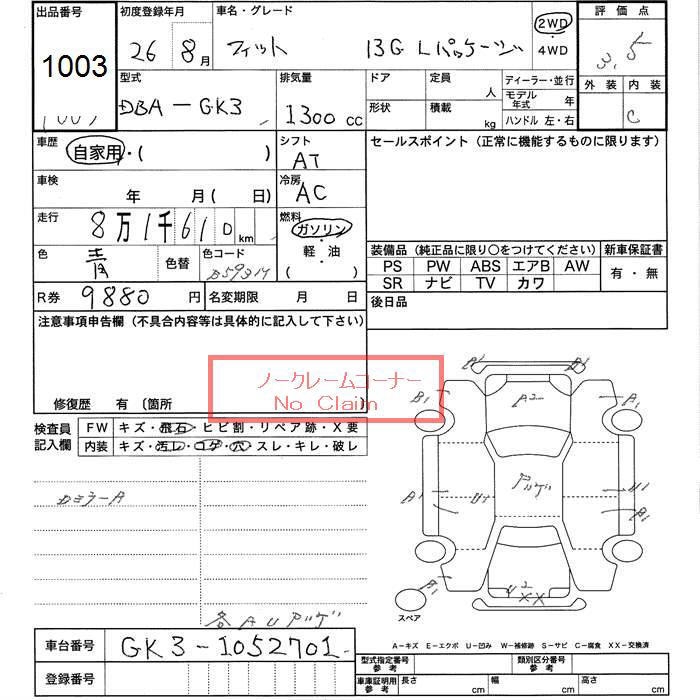 出品番号 初度登録年月 車名・グレード 2WD 評価点
1003 26 8月 フィット 13G Lパッケージ ・4WD 3.5
型式 排気量 ドア 定員 人 ディーラー・並行 外装 内装
DBA-GK3 1300cc 形状 積載 kg モデル年式 年 C
ハンドル 左・右
車歴 自家用・( ) シフト AT セールスポイント(正常に機能するものに限ります)
車検 年 月(日) 冷房 AC
走行 8万1千610km 燃料 ガソリン・軽油( )
色 青 色替 色コード B593M 装備品(純正品に限り○をつけてください) 新車保証書
PS PW ABS エアB AW 有・無
SR ナビ TV カワ
R券 9880円 名変期限 月 日 後日品
注意事項申告欄(不具合内容等は具体的に記入して下さい)
ノークレームコーナー
No Claim
修復歴 有 〔箇所
検査員記入欄 FW キズ・飛石・ヒビ割・リペア跡・X要
内装 キズ・汚レ・コゲ・穴・スレ・キレ・破レ
B1 B1
B1 A2 A1
DミラーA A1 U1 アリゲ U1
A1
B1 U2 XX
スペア
各AUアリゲ
A-キズ E-エクボ U-凹み W-補修跡 S-サビ C-腐食 XX-交換済
車台番号 GK3-1052701
登録番号 型式指定番号参考 類別区分番号参考
車庫証明用参考 長さ cm 幅 cm 高さ cm